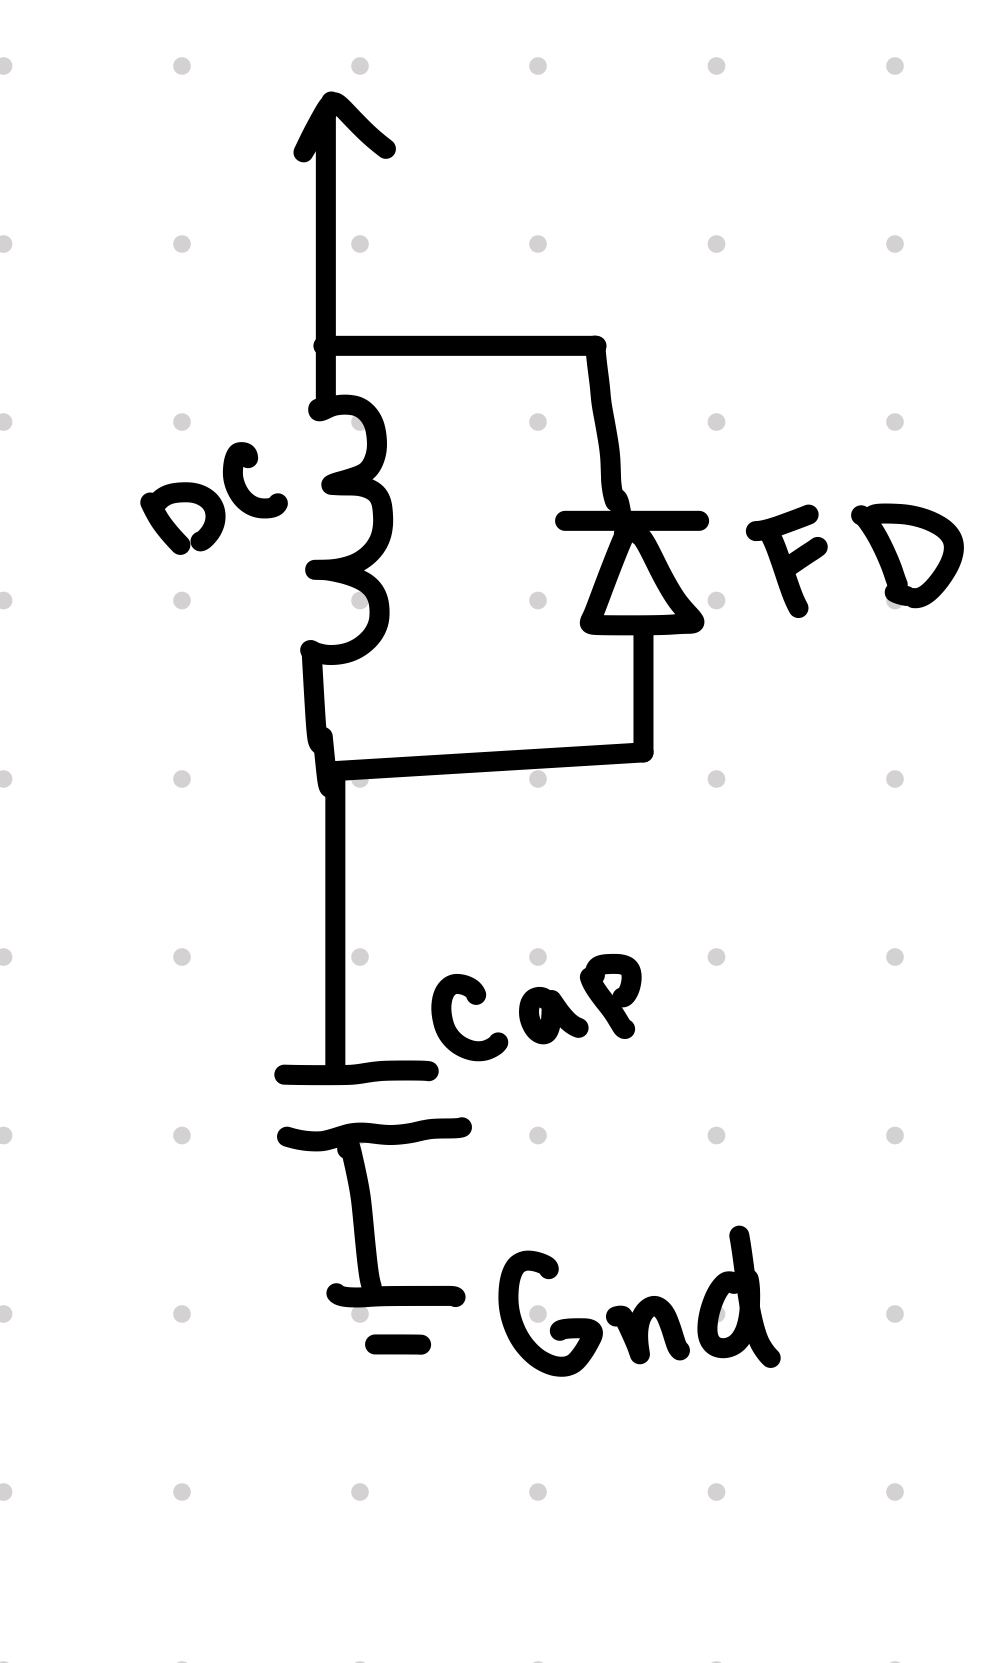 DC
FD
Cap
Gnd